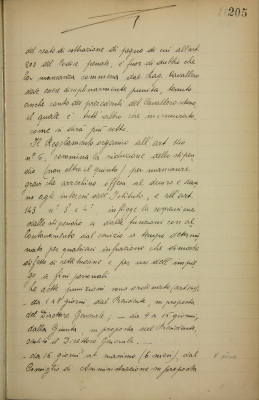 205
del reato di sottrazione di pegno di cui all'art.
203 del Codice penale, è fuor di dubbio che
la mancanza commessa dal Rag. Cavallero
deve essere disciplinarmente punita, tenuto
anche conto dei precedenti del Cavallero stesso
il quale è tutt'altro che incensurato,
come si dirà più sotto.
Il Regolamento organico all'art. 140
n° 6, commina la riduzione dello stipen-
dio (non oltre il quinto) per mancanze
gravi che arrechino offesa al decoro e dan-
no agli interessi dell'Istituto, e all'art.
143 n° 3 e 4 infligge la sospensione
dallo stipendio e dalle funzioni con al-
lontanamento dal servizio a tempo determi
nato per qualsiasi infrazione che dimostri
difetto di rettitudine e per uso dell'impie-
go a fini personali
Le dette punizioni sono
- da 1 a 8 giorni dal Presidente, su proposta
del Direttore Generale; - da 9 a 15 giorni,
dalla Giunta su proposta del Presidente,
sentito il Direttore Generale, -
- da 16 giorni al massimo (6 mesi), dal
Consiglio di Amministrazione su proposta